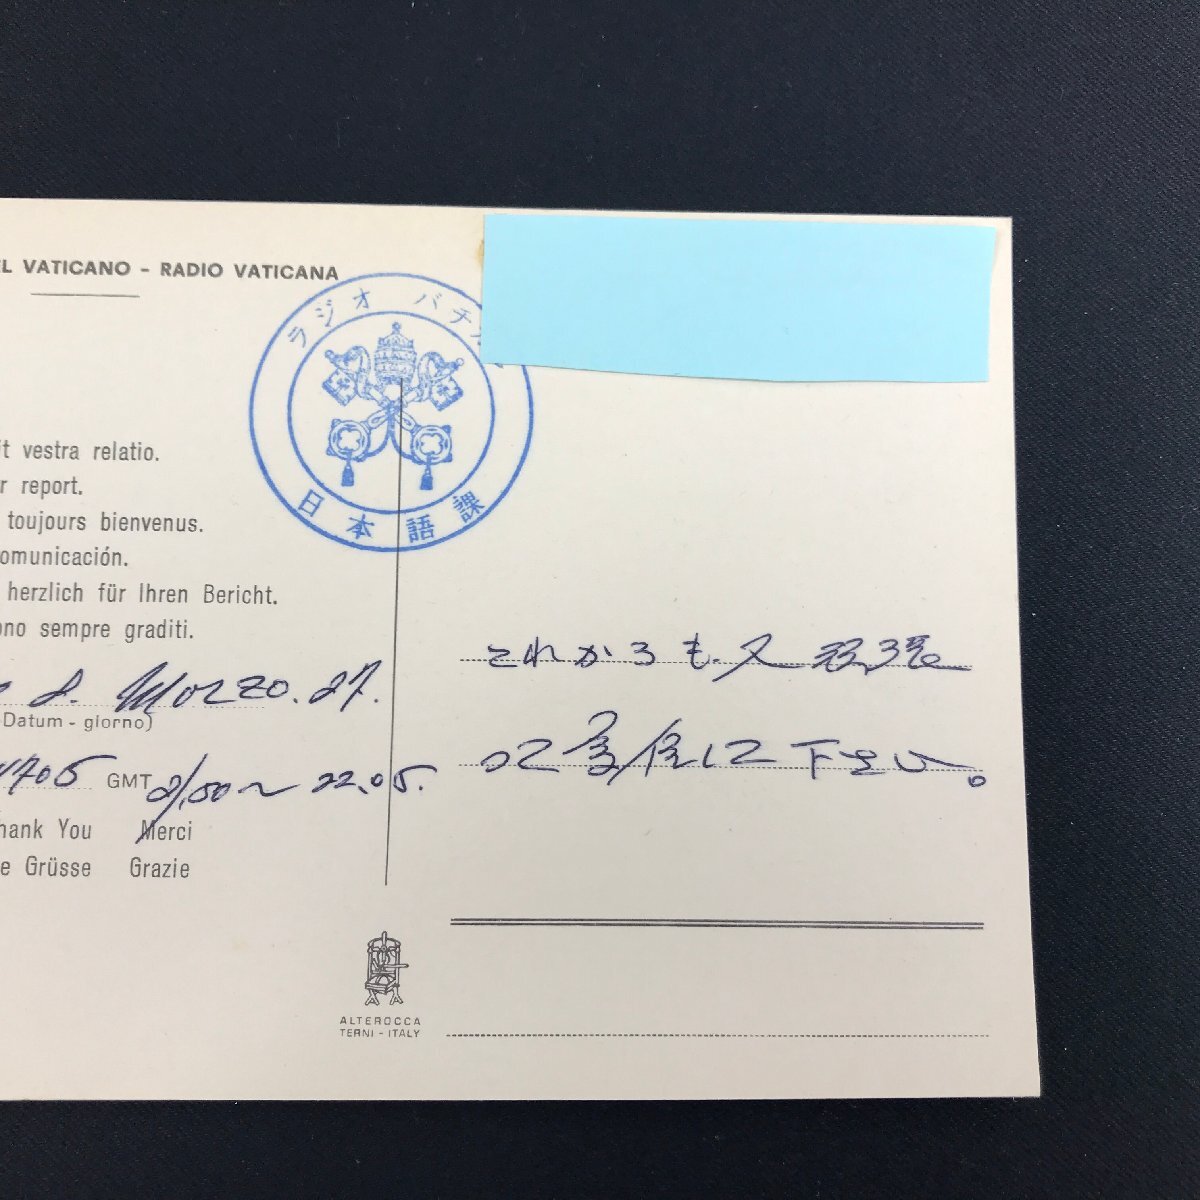 EL VATICANO - RADIO VATICANA
ラジオ バチ
日本語課
it vestra relatio.
r report.
toujours bienvenus.
omunicación.
herzlich für Ihren Bericht.
ono sempre graditi.
8. Marzo. 27.
Datum - giorno)
GMT 21.50〜22.05.
hank You Merci
e Grüsse Grazie
これからも又
下さい。
ALTEROCCA
TERNI - ITALY